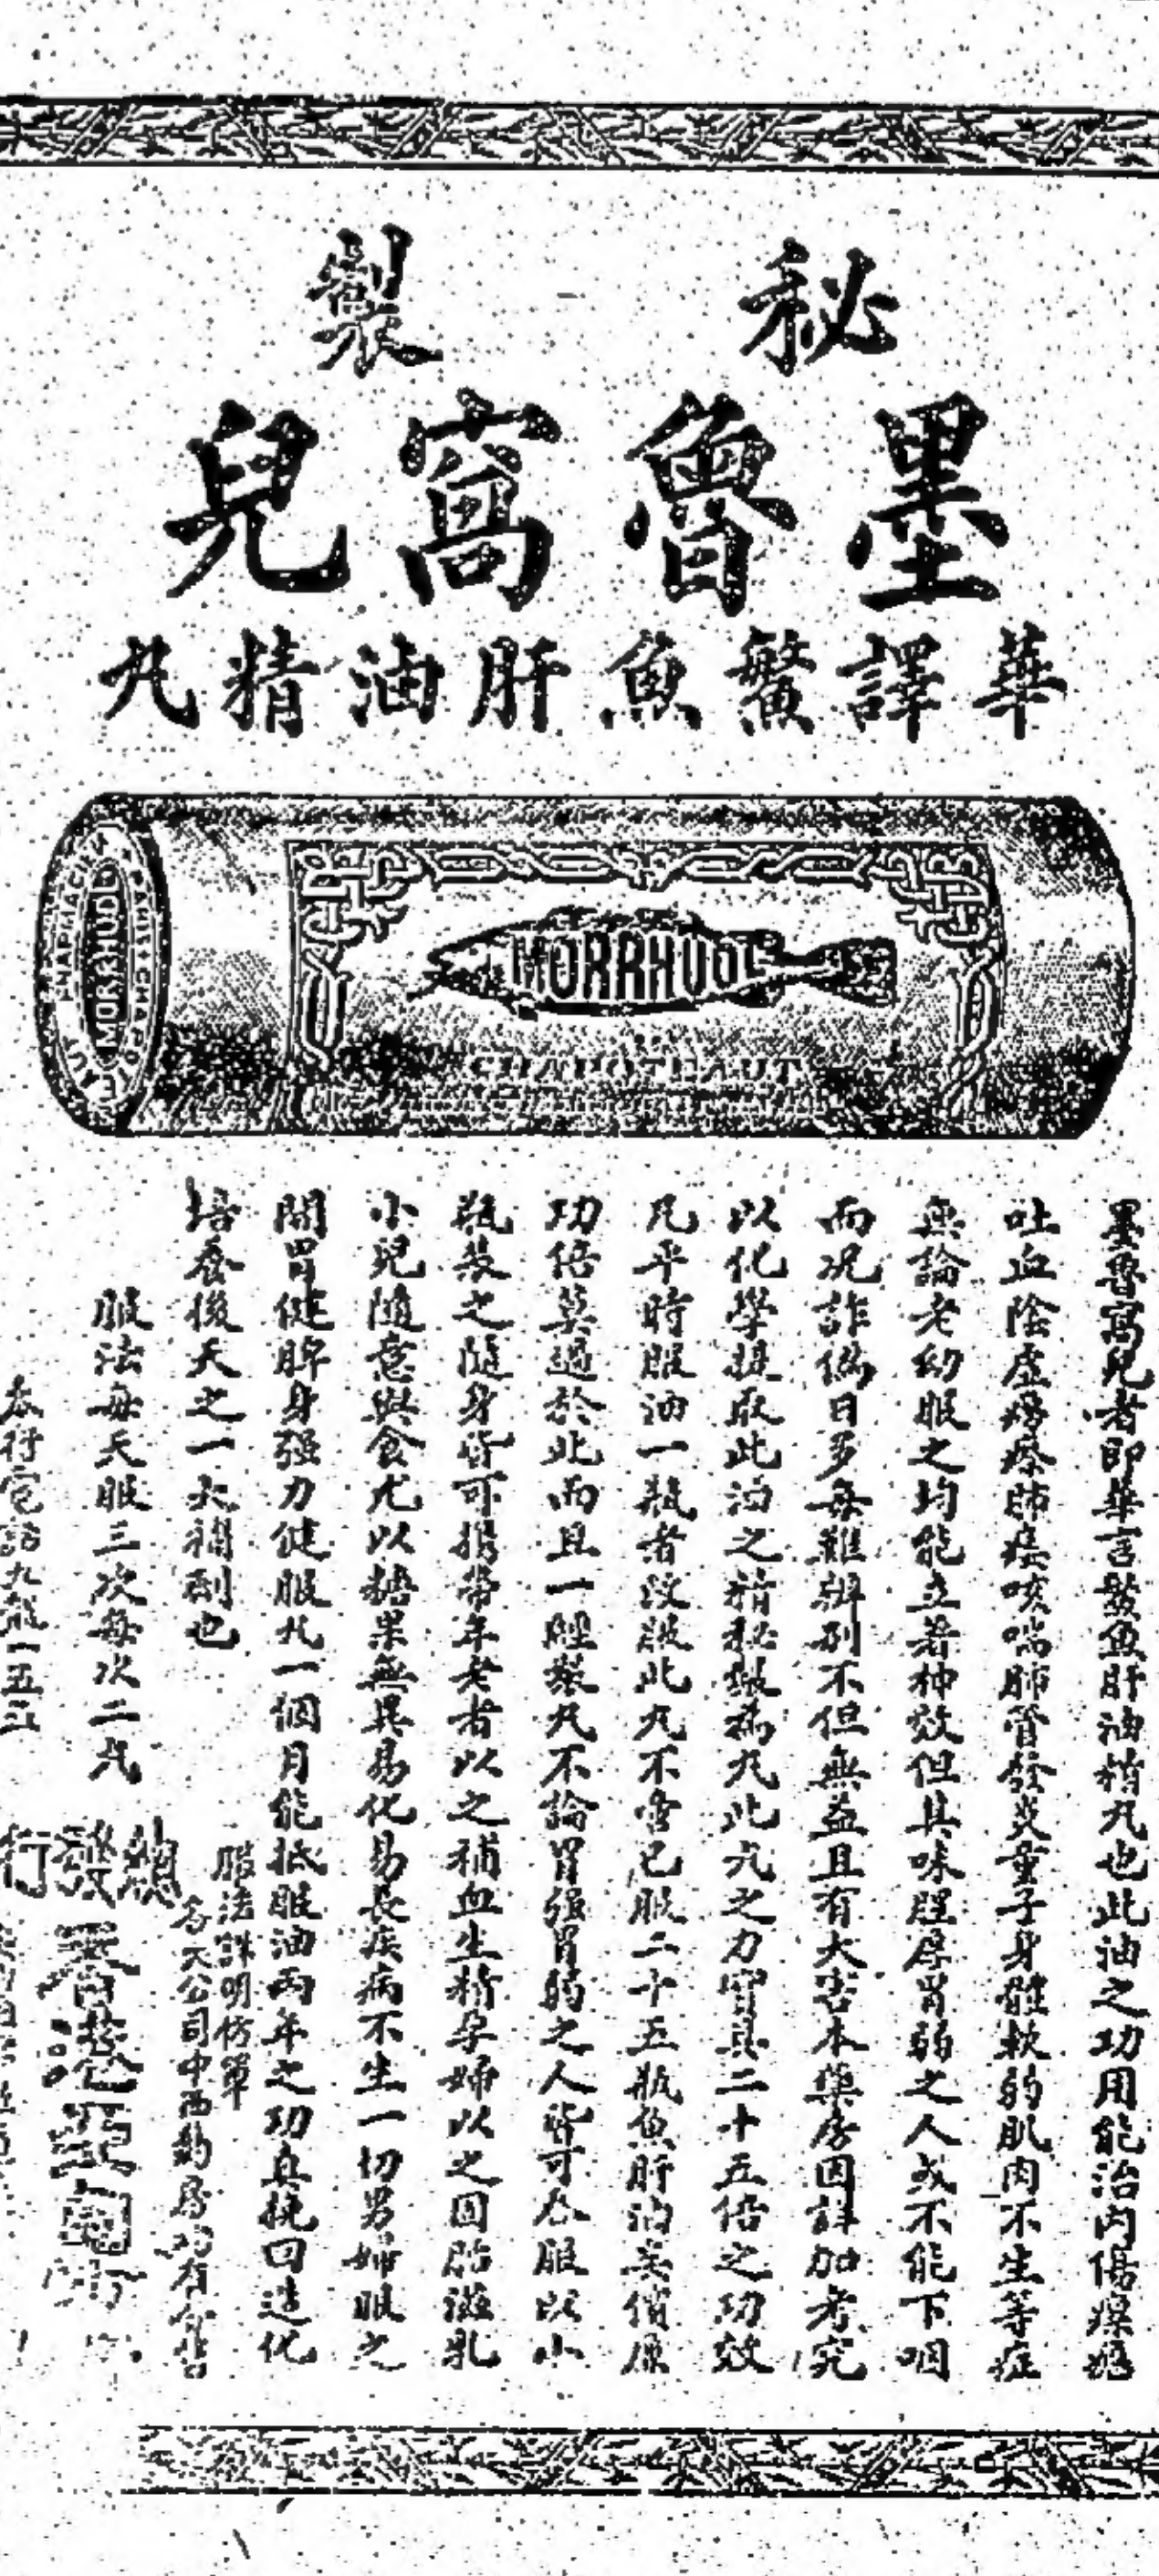 秘製
墨魯窩兒
華譯鱉魚肝油精丸
PHARMACIEN
PARIS
CHAPOTEAUT
MORRHUOL
MORRHUOL
CHAPOTEAUT
墨魯窩兒者即華言鱉魚肝油精丸也此油之功用能治內傷瘰癧
吐血陰虛癆瘵肺痿咳喘肺管發炎童子身體軟弱肌肉不生等症
無論老幼服之均能立著神效但其味腥厚胃弱之人或不能下咽
而况詐偽日多每難辨別不但無益且有大害本藥房因詳加考究
以化學提取此油之精秘製為丸此丸之力實具二十五倍之功效
凡平時服油一瓶者改服此丸不啻已服二十五瓶魚肝油矣價廉
功倍莫過於此而且一經製丸不論胃強胃弱之人皆可吞服以小
瓶裝之隨身皆可攜帶年老者以之補血生精孕婦以之固胎滋乳
小兒隨意與食尤以糖果無異易化易長疾病不生一切男婦服之
開胃健脾身强力健服丸一個月能抵服油兩年之功真挽回造化
培養後天之一大補劑也
服法每天服三次每次二丸
服法詳明仿單
各大公司中西葯房均有分售
總發行
本行電話九龍一五三